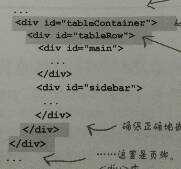 ...
<div id="tableContainer">
<div id="tableRow">
<div id="main">
...
</div>
<div id="sidebar">
...
</div>
</div>
</div>
...
确保正确地
……这里是页脚。